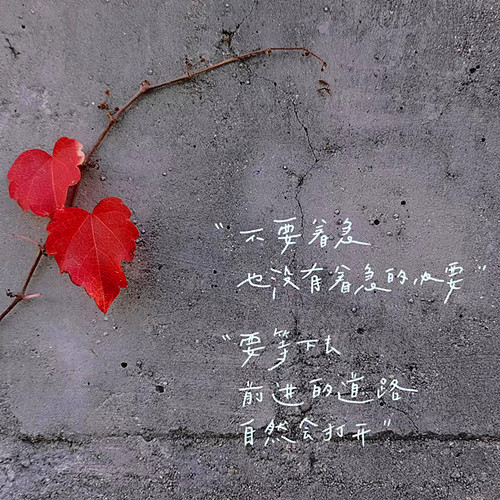 “不要着急
也没有着急的必要”
“要等下去
前进的道路
自然会打开”